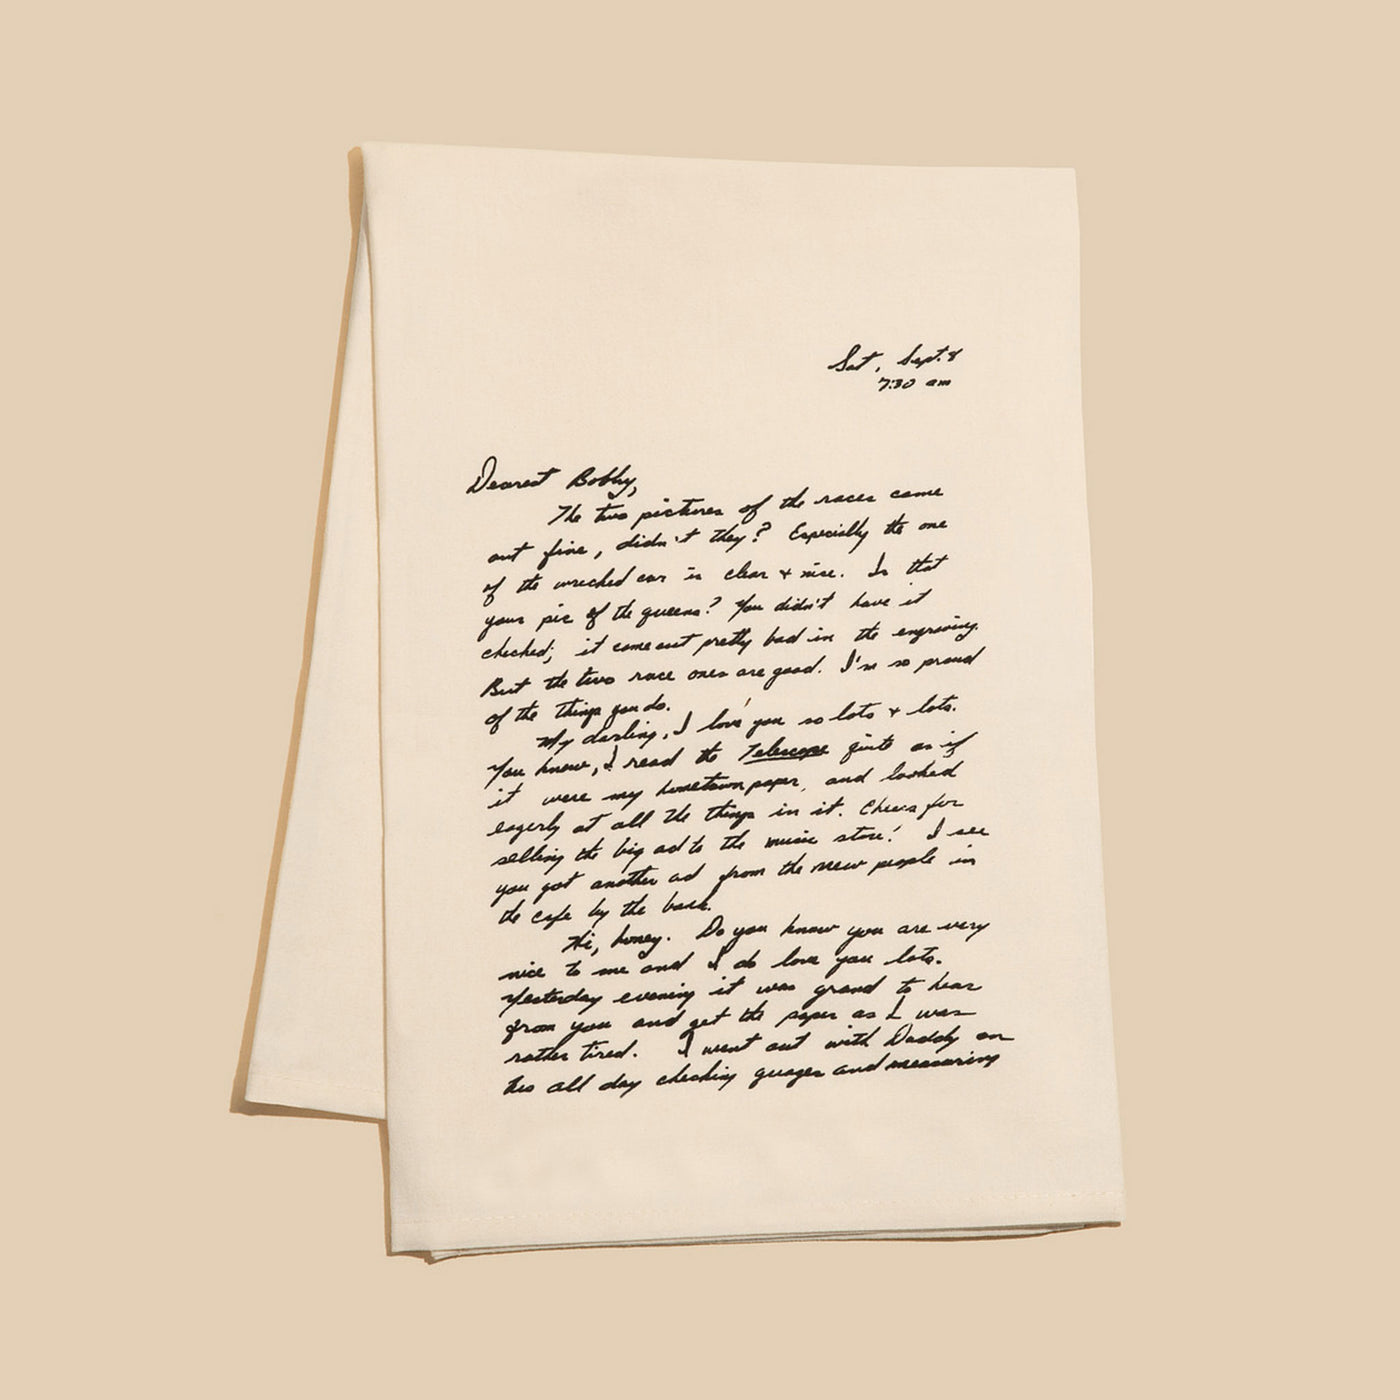 Sat, Sept. 8
7:30 am
Dearest Bobby,
The two pictures of the races came
out fine, didn't they? Especially the one
of the wrecked car is clear + nice. Is that
your pic of the queens? You didn't have it
checked; it came out pretty bad in the engraving.
But the two race ones are good. I'm so proud
of the things you do.
My darling, I love you so lots + lots.
You know, I read the Telescope quite as if
it were my hometown paper, and looked
eagerly at all the things in it. Cheers for
selling the big ad to the music store! I see
you got another ad from the new people in
the cafe by the bank.
Hi, honey. Do you know you are very
nice to me and I do love you lots.
Yesterday evening it was grand to hear
from you and get the paper as I was
rather tired. I went out with Daddy on
all day checking guages and measuring